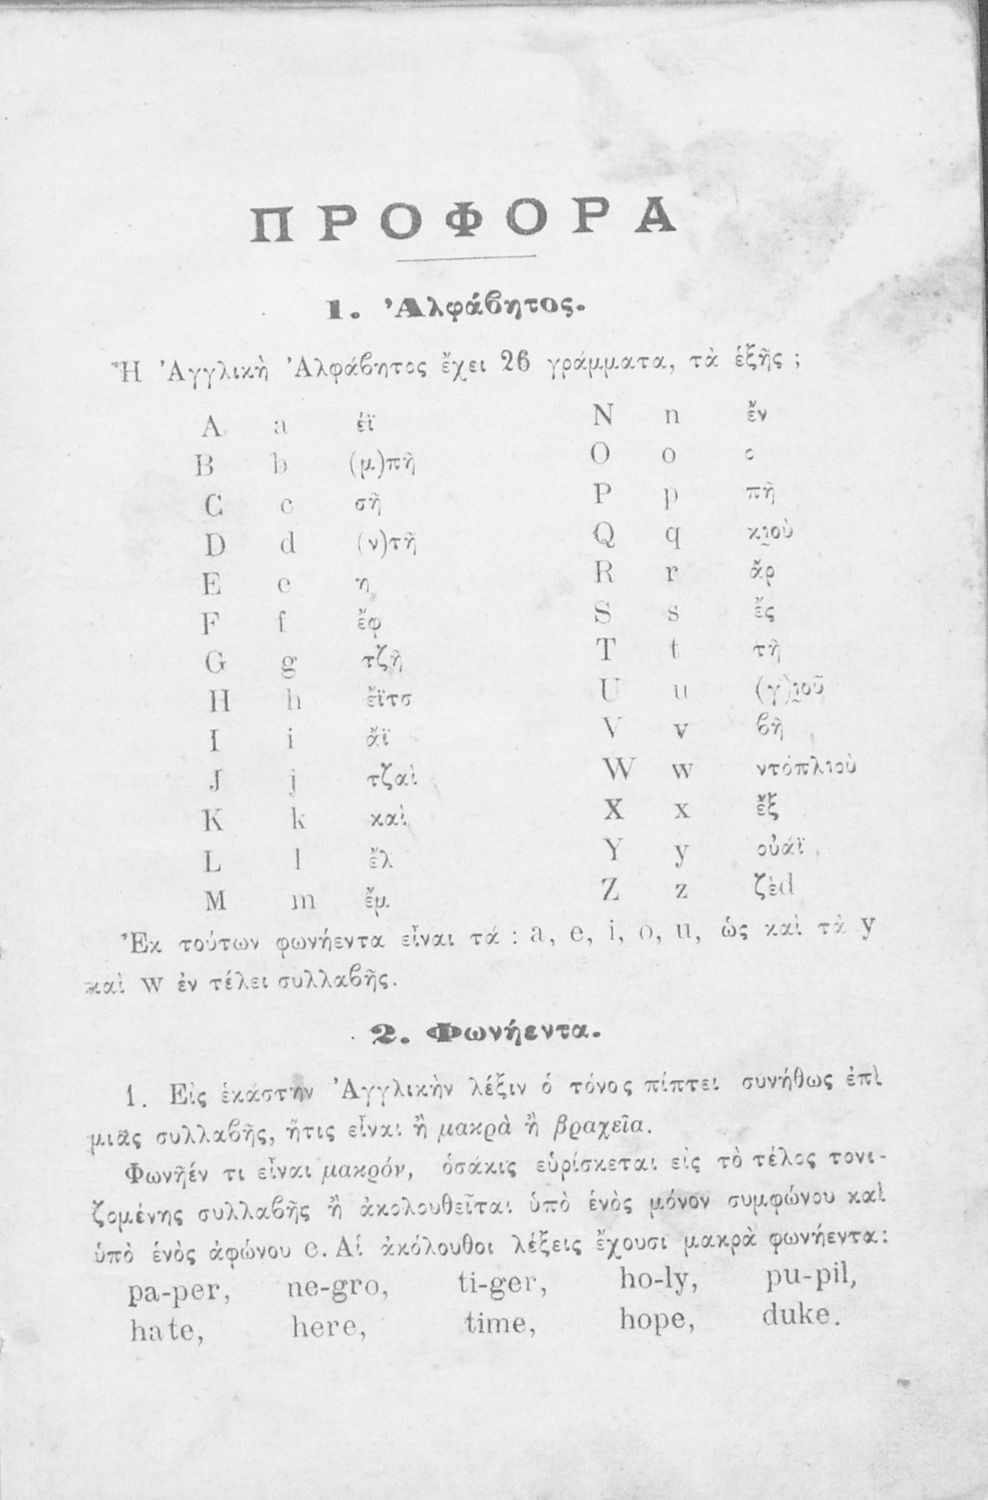 ΠΡΟΦΟΡΑ
1. Ἀλφάβητος.
Ἡ Ἀγγλικὴ Ἀλφάβητος ἔχει 26 γράμματα, τὰ ἑξῆς ;
A a ἑϊ N n ἔν
B b (μ)πῆ O o ο
C c σῆ P p πῆ
D d (ν)τῆ Q q κιοὺ
E e η R r ἄρ
F f ἔφ S s ἔς
G g τζῆ T t τῆ
H h ἔϊτσ U u (γ)ιοῦ
I i ἄϊ V v βῆ
J j τζαὶ W w ντόπλιοὺ
K k καὶ X x ἔξ
L l ἔλ Y y οὐάϊ
M m ἔμ Z z ζὲd
Ἐκ τούτων φωνήεντα εἶναι τά : a, e, i, o, u, ὡς καὶ τὰ y
καὶ w ἐν τέλει συλλαβῆς.
2. Φωνήεντα.
1. Εἰς ἑκάστην Ἀγγλικὴν λέξιν ὁ τόνος πίπτει συνήθως ἐπὶ
μιᾶς συλλαβῆς, ἥτις εἶναι ἢ μακρὰ ἢ βραχεῖα.
Φωνῆέν τι εἶναι μακρόν, ὁσάκις εὑρίσκεται εἰς τὸ τέλος τονι-
ζομένης συλλαβῆς ἢ ἀκολουθεῖται ὑπὸ ἑνὸς μόνον συμφώνου καὶ
ὑπὸ ἑνὸς ἀφώνου e. Αἱ ἀκόλουθοι λέξεις ἔχουσι μακρὰ φωνήεντα:
pa-per, ne-gro, ti-ger, ho-ly, pu-pil,
hate, here, time, hope, duke.